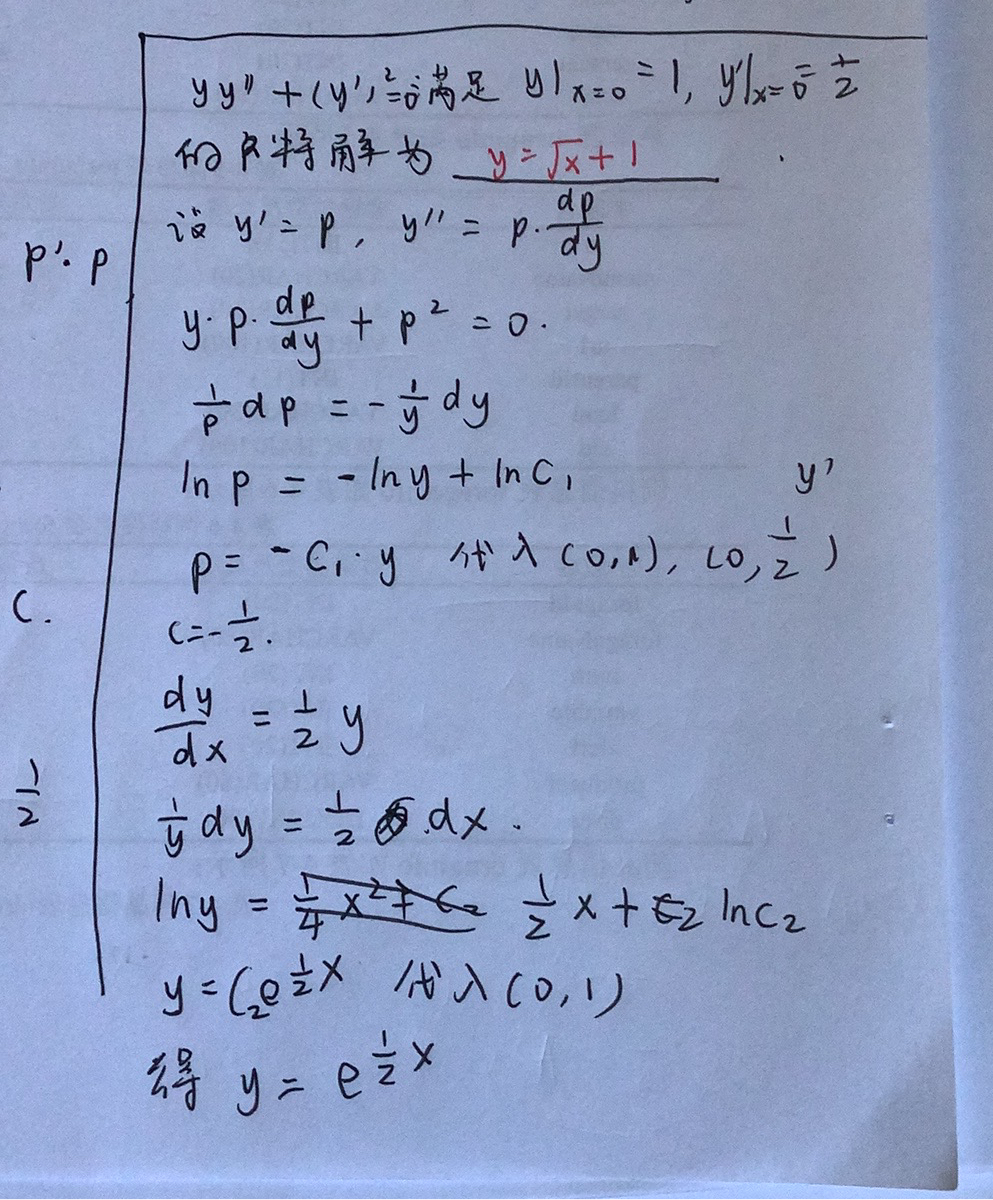 yy″+(y′)²=0满足 y|ₓ₌₀=1, y′|ₓ₌₀=1/2
的特解为 y=√x+1 .
设 y′=p, y″=p·dp/dy
p′·p
y·p·dp/dy+p²=0.
1/p dp=-1/y dy
ln p=-lny+lnC₁
y′
p=-C₁·y 代入(0,1), (0,1/2)
C.
c=-1/2.
dy/dx=1/2 y
1/2
1/y dy=1/2 dx.
lny=1/4 x²+C₂ 1/2 x+C₂ lnc₂
y=C₂e^(1/2 x) 代入(0,1)
得 y=e^(1/2 x)